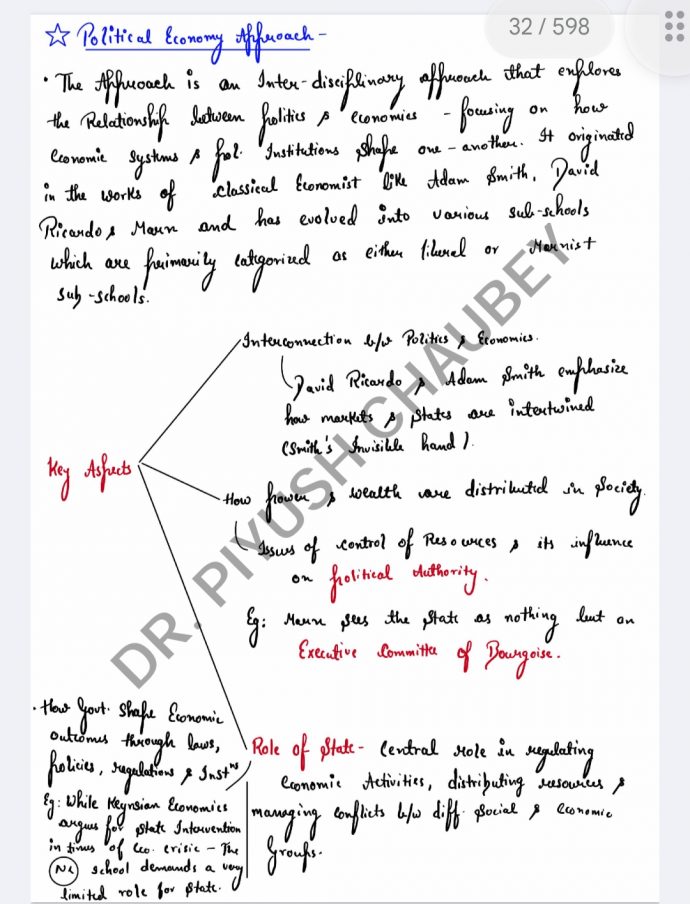 32 / 598
☆ Political Economy Approach -
· The Approach is an Inter-disciplinary approach that explores
the Relationship between politics & economics - focusing on how
Economic Systems & pol. Institutions shape one-another. It originated
in the works of classical Economist like Adam Smith, David
Ricardo & Marx and has evolved into various sub-schools
which are primarily categorized as either liberal or Marxist
sub-schools.
Interconnection b/w Politics & Economics.
David Ricardo & Adam Smith emphasize
how markets & states are intertwined
(Smith's Invisible hand).
Key Aspects
How power & wealth are distributed in Society.
Issues of control of Resources & its influence
on political Authority.
Eg: Marx sees the State as nothing but an
Executive Committee of Bourgoise.
Role of State - Central role in regulating
Economic Activities, distributing resources &
managing conflicts b/w diff. Social & economic
Groups.
· How Govt. Shape Economic
outcomes through laws,
policies, regulations & Instns
Eg: While Keynsian Economics
argues for State Intervention
in times of Eco. crisis - The
NL school demands a very
limited role for State.
DR. PIYUSH CHAUBEY